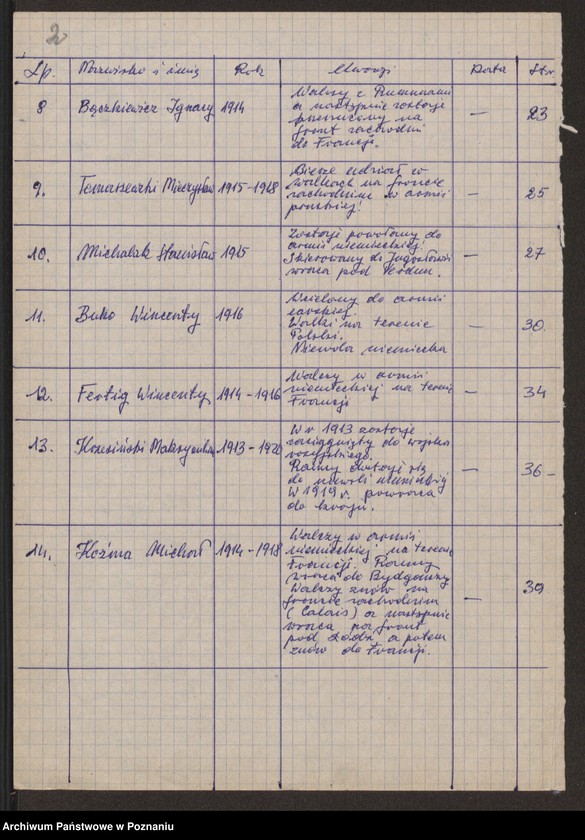 2
Lp. Nazwisko i imię Rok Uwagi Data Str.
8 Bączkiewicz Ignacy 1914 Walczy z Rumunami — 23
a następnie zostaje
przerzucony na
front zachodni
do Francji.
9. Tomaszewski Mieczysław 1915-1918 Bierze udział w — 25
walkach na froncie
zachodnim w armii
pruskiej!
10. Michalak Stanisław 1915 Zostaje powołany do — 27
armii niemieckiej!
Skierowany do Jugosławii
wraca pod Verdun.
11. Buko Wincenty 1916 Wcielony do armii — 30.
carskiej.
Walki na terenie
Polski.
Niewola niemiecka
12. Fertig Wincenty 1914-1916 Walczy w armii — 34
niemieckiej na terenie
Francji
13. Maksymilian 1913-1920 W r. 1913 zostaje — 36-
zaciągnięty do wojska
rosyjskiego.
Ranny dostaje się
do niewoli niemieckiej
W 1919 r. powraca
do kraju.
14. Koźma Michał 1914-1918 Walczy w armii — 39
niemieckiej na terenie
Francji. Ranny
wraca do Bydgoszczy
Walczy znów na
froncie zachodnim
(Calais) a następnie
wraca na front
pod Łódź a potem
znów do Francji.
Archiwum Państwowe w Poznaniu